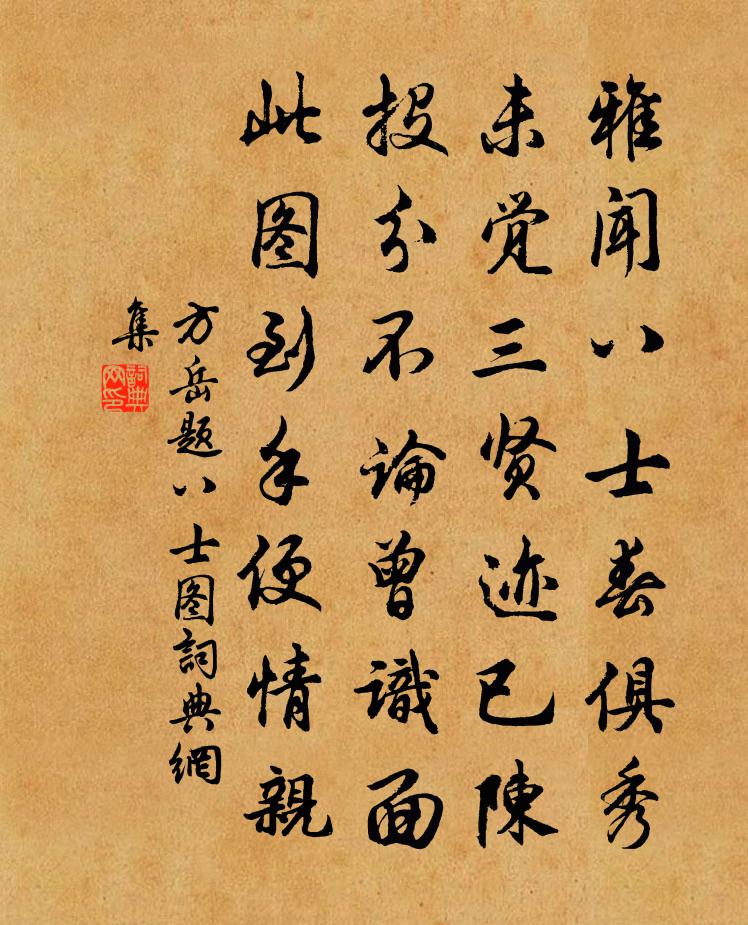 雅闻八士春俱秀
未觉三贤迹已陳
投分不論曾識面
此图到手便情親
方岳题八士图詞典網
集
詞典
网印